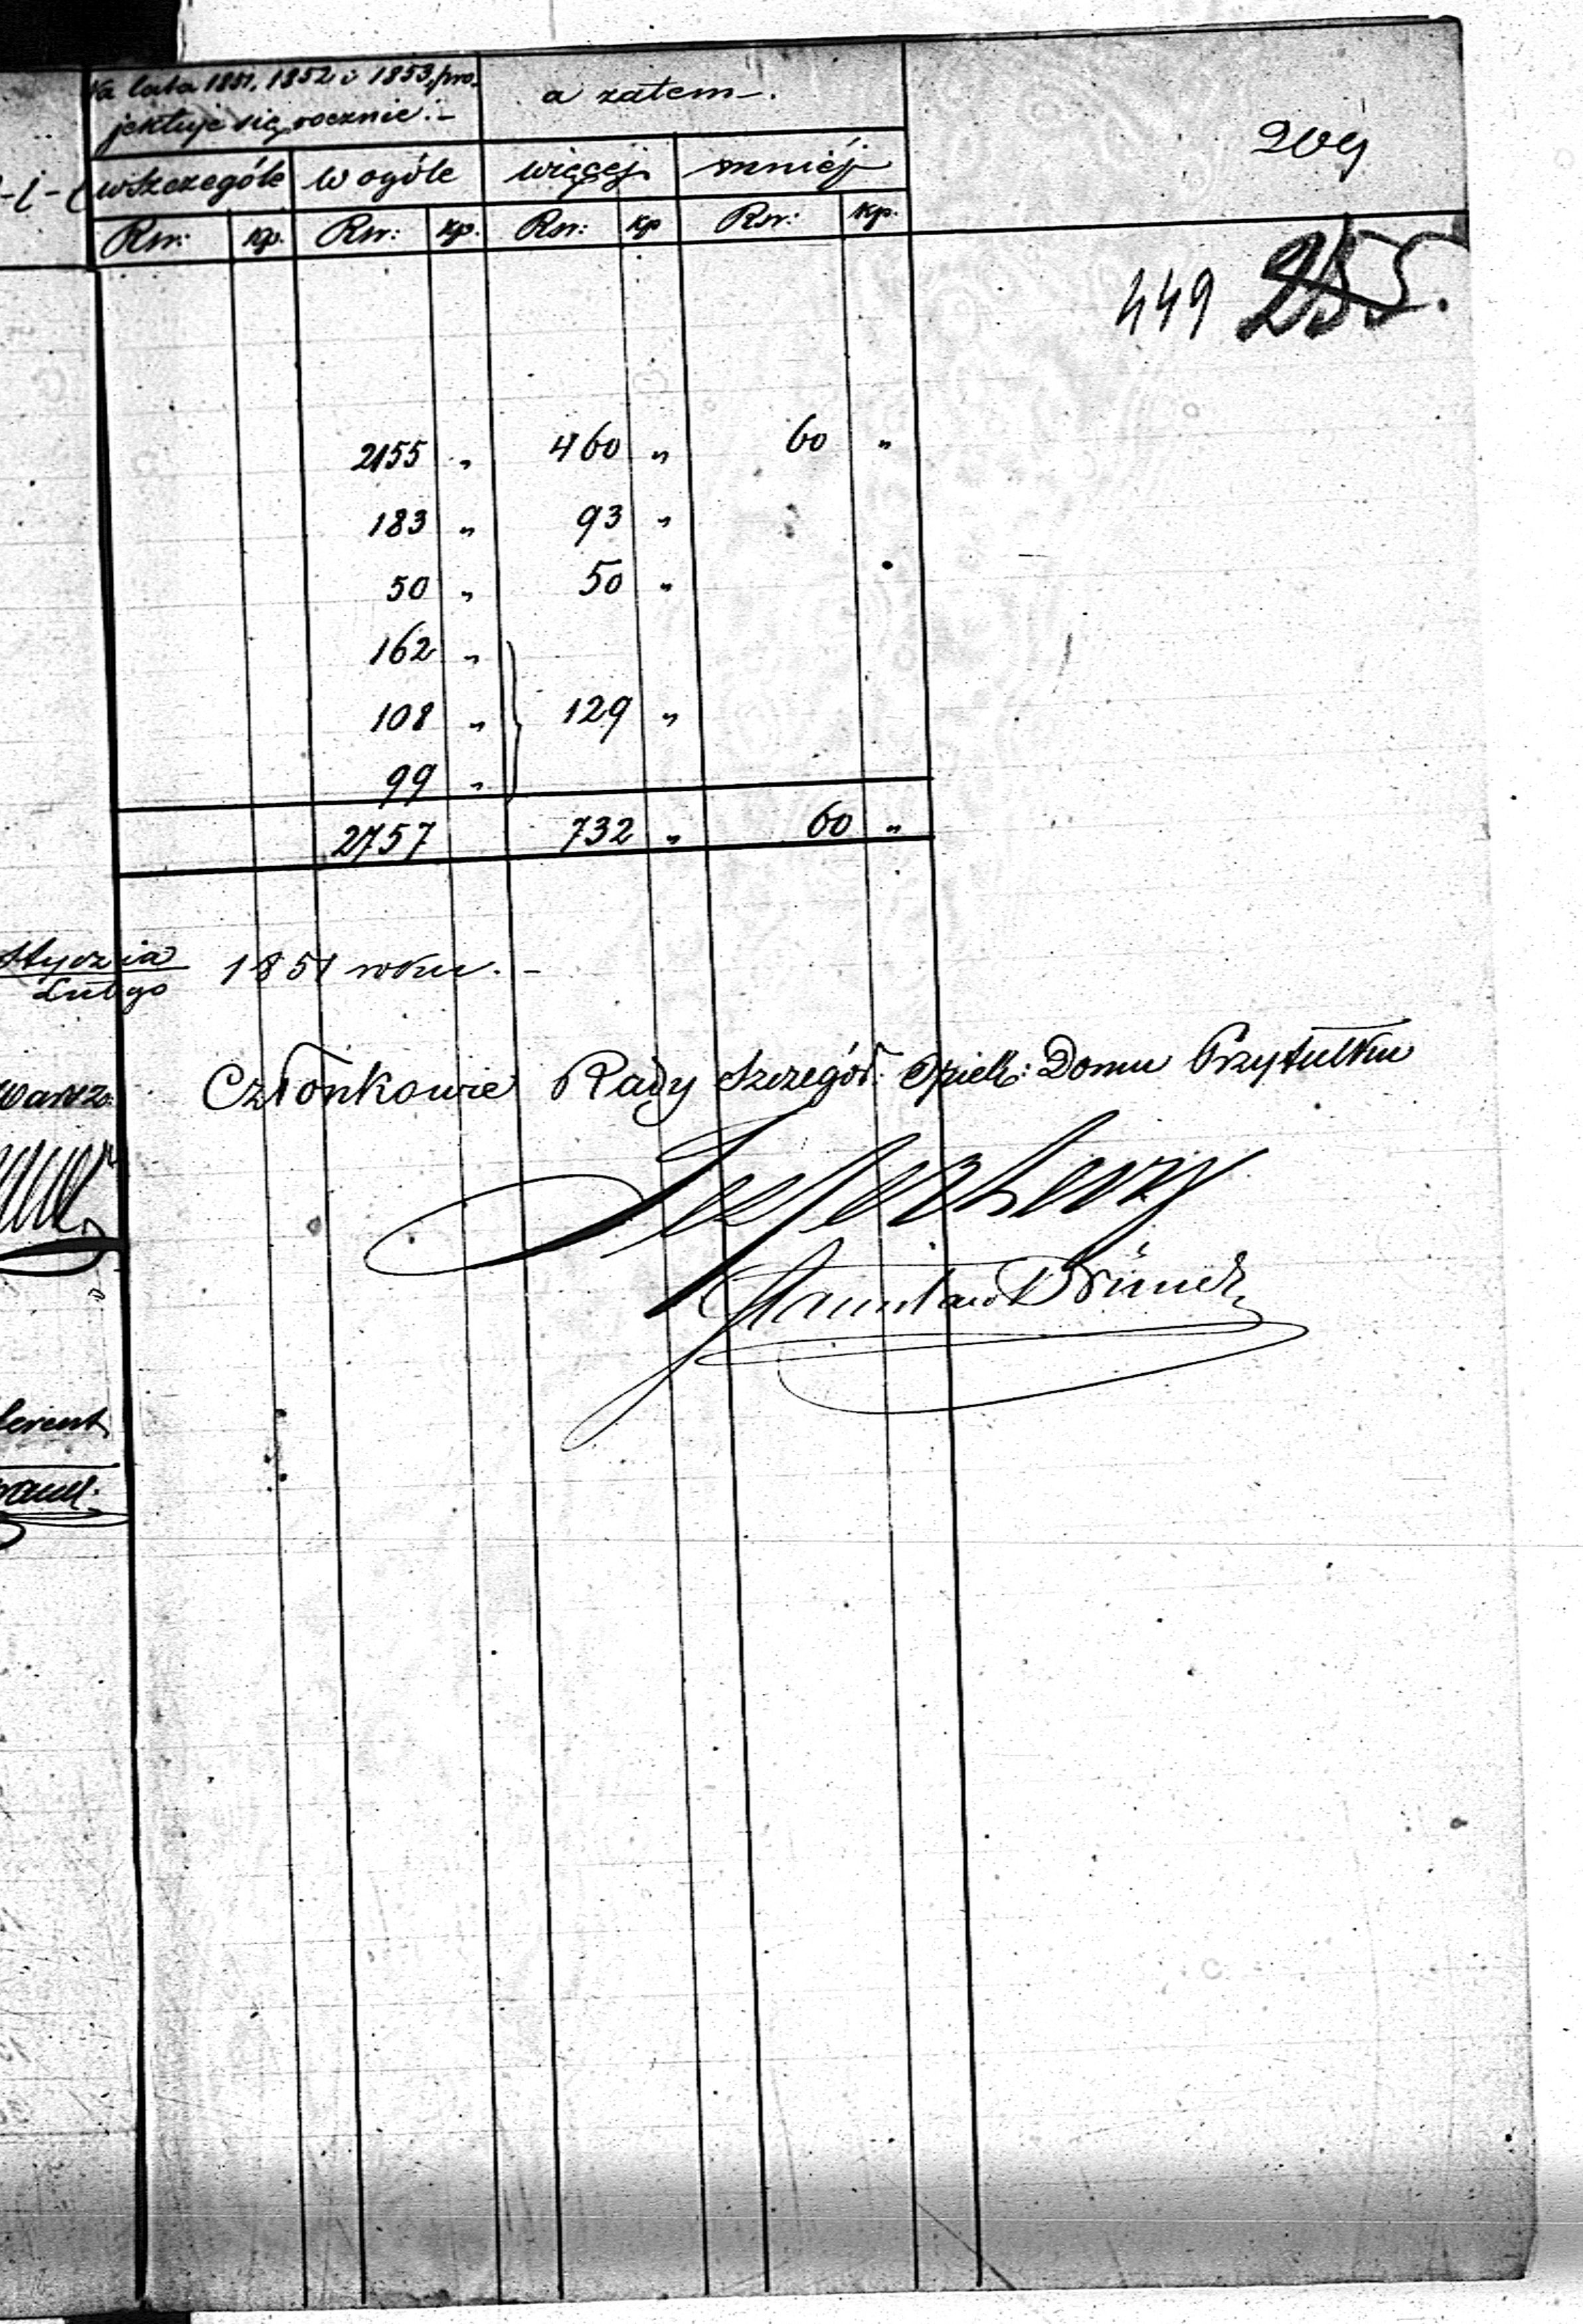 Na lata 1851, 1852 i 1853, pro-
jektuje się rocznie:-
a zatem-.
209
w szczególe w ogóle więcej mniéj
Rsr: kp. Rsr: kp. Rsr: kp Rsr: kp.
449 255.
2155 " 460 " 60 "
183 " 93 "
50 " 50 "
162 "
108 " 129 "
99 "
2757 732 " 60 "
Stycznia
Lutego 1851 roku.-
Członkowie Rady Szczegół: Opiek: Domu Przytułku
Stanisław